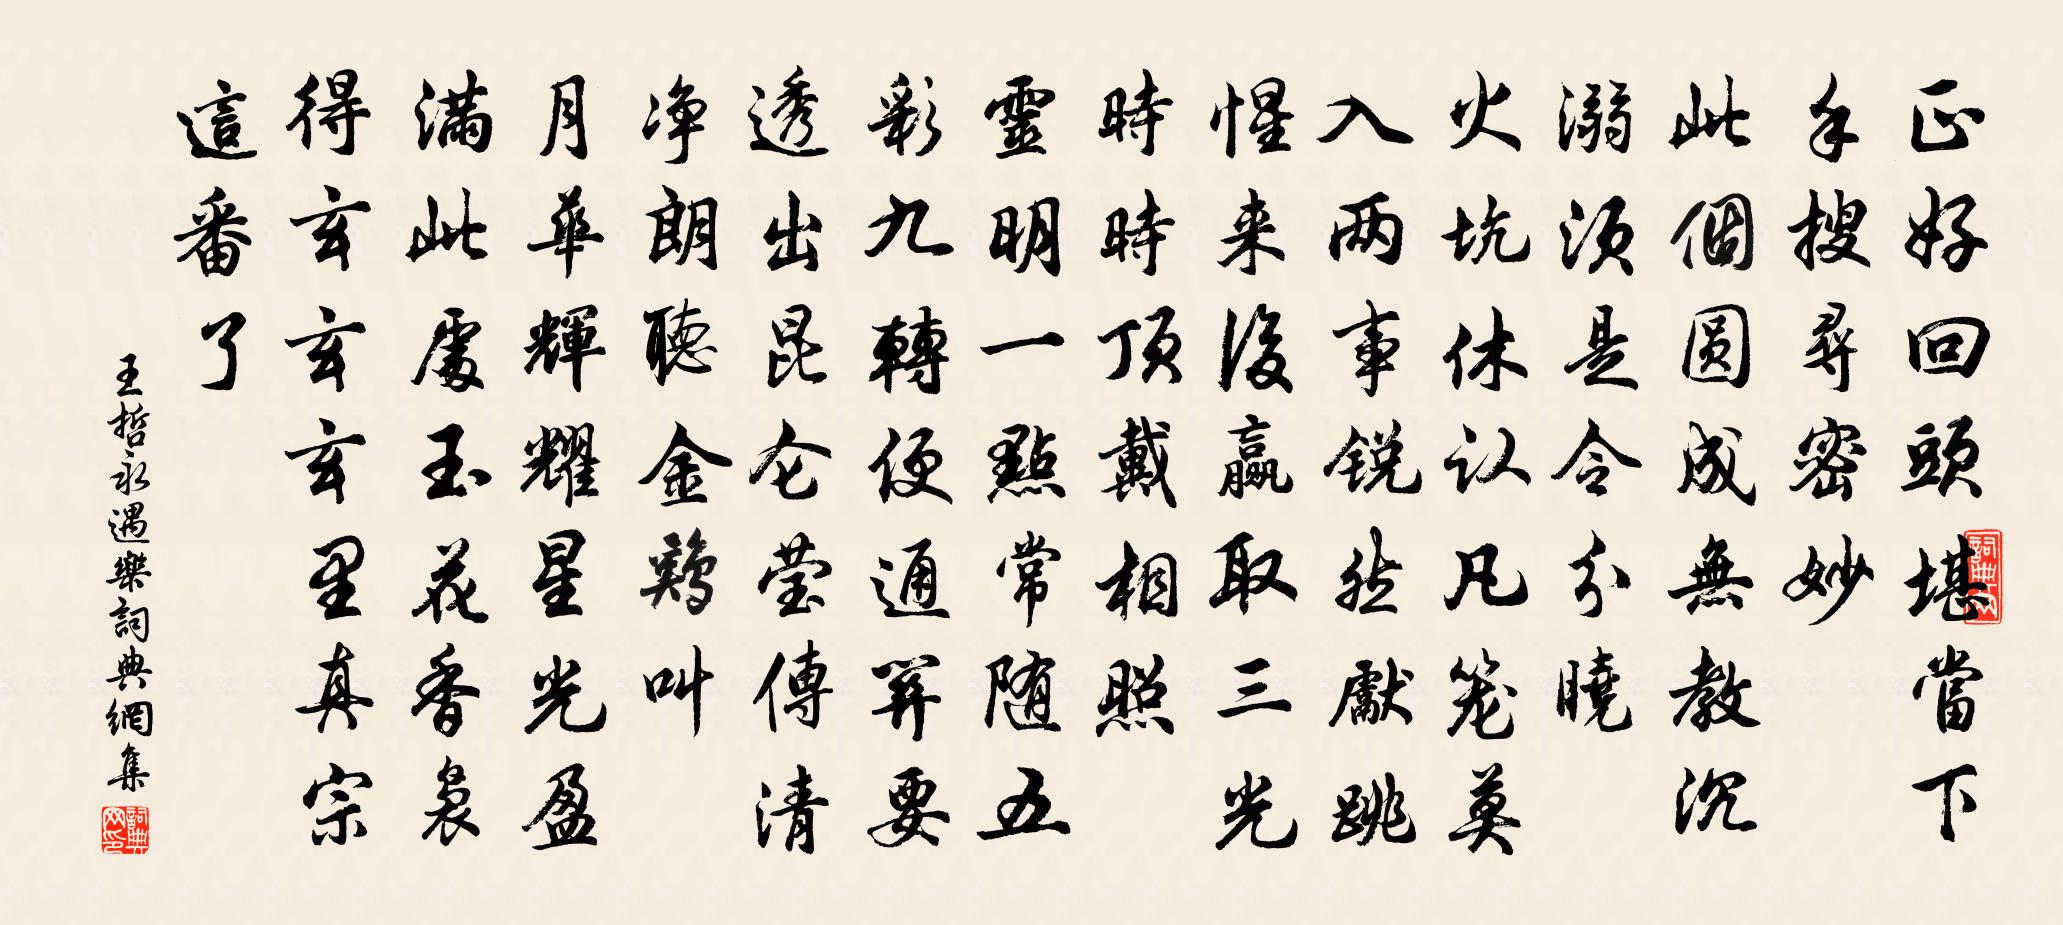 正好回頭堪當下
手搜尋密妙
此個圆成無教沉
溺须是令分曉
火坑休认凡笼莫
入两事锐然獻跳
惺来後赢取三光
時時顶戴相照
靈明一點常随五
彩九轉便通關要
透出昆仑莹傳清
净朗聽金鷄叫
月華輝耀星光盈
滿此處玉花香裊
得玄玄玄里真宗
這番了
王哲永遇樂詞典網集